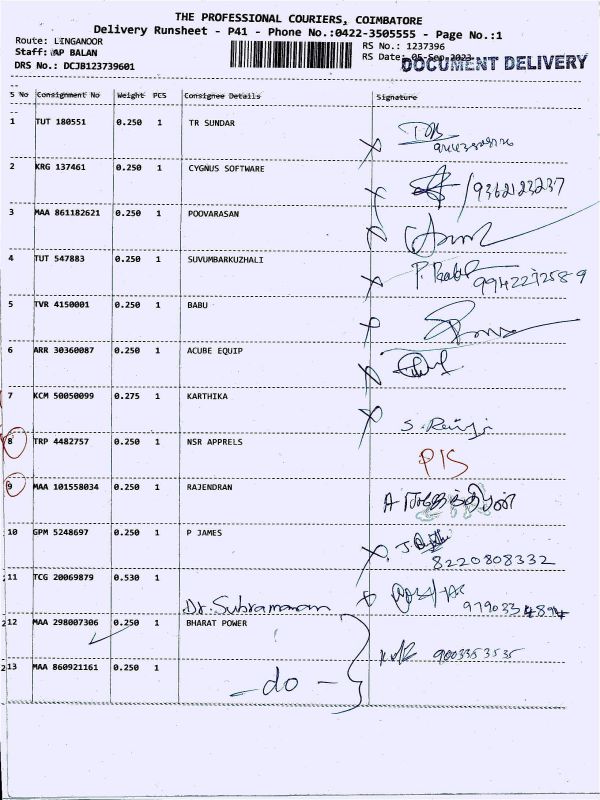 THE PROFESSIONAL COURIERS, COIMBATORE
Delivery Runsheet - P41 - Phone No.:0422-3505555 - Page No.:1
Route: LINGANOOR
RS No.: 1237396
Staff: AP BALAN
RS Date: 05-Sep-2023
DOCUMENT DELIVERY
DRS No.: DCJB123739601
S No Consignment No Weight PCS Consignee Details Signature
1 TUT 180551 0.250 1 TR SUNDAR
2 KRG 137461 0.250 1 CYGNUS SOFTWARE /9362123237
3 MAA 861182621 0.250 1 POOVARASAN
4 TUT 547883 0.250 1 SUVUMBARKUZHALI
9942272589
5 TVR 4150001 0.250 1 BABU
6 ARR 30360087 0.250 1 ACUBE EQUIP
7 KCM 50050099 0.275 1 KARTHIKA
8 TRP 4482757 0.250 1 NSR APPRELS
P15
9 MAA 101558034 0.250 1 RAJENDRAN
10 GPM 5248697 0.250 1 P JAMES
8220808332
11 TCG 20069879 0.530 1
Dr. Subramaniam
12 MAA 298007306 0.250 1 BHARAT POWER
9003353535
13 MAA 860921161 0.250 1
- do -